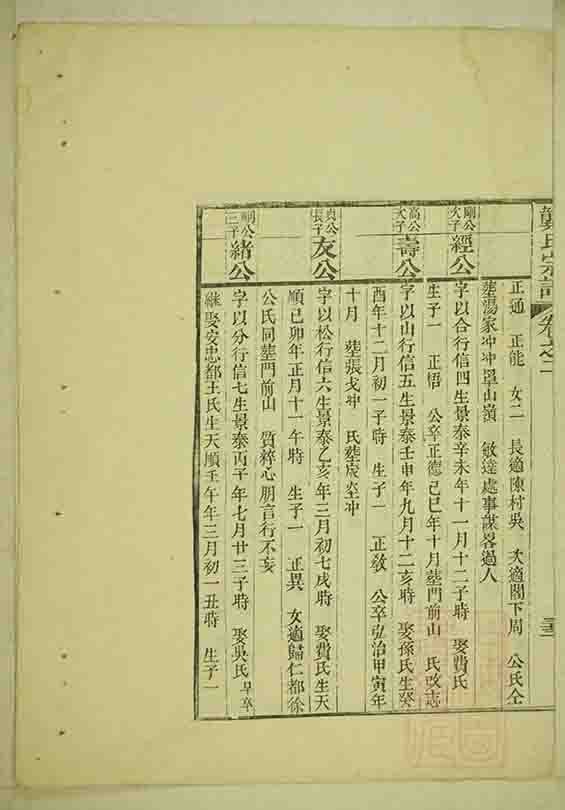 氏宗譜 卷之二
正通 正能 女二 長適陳村吳 次適閣下周 公氏仝
塟湯家冲冲單山嶺 敏達處事謀畧過人
剛公次子 經公 字以合行信四生景泰辛未年十一月十二子時 娶費氏
生子一 正悟 公卒正德己巳年十月塟門前山 氏改志
高公次子 壽公 字以山行信五生景泰壬申年九月十二亥時 娶孫氏生癸
酉年十二月初一子時 生子一 正敎 公卒弘治甲寅年
十月 塟張戈冲 氏塟 冲
貞公長子 友公 字以松行信六生景泰乙亥年三月初七戌時 娶費氏生天
順己卯年正月十一午時 生子一 正異 女適歸仁都徐
公氏同塟門前山 質粹心朋言行不妄
剛公三子 緒公 字以分行信七生景泰丙子年七月廿三子時 娶吳氏早卒
繼娶安忠都王氏生天順壬午年三月初一丑時 生子一